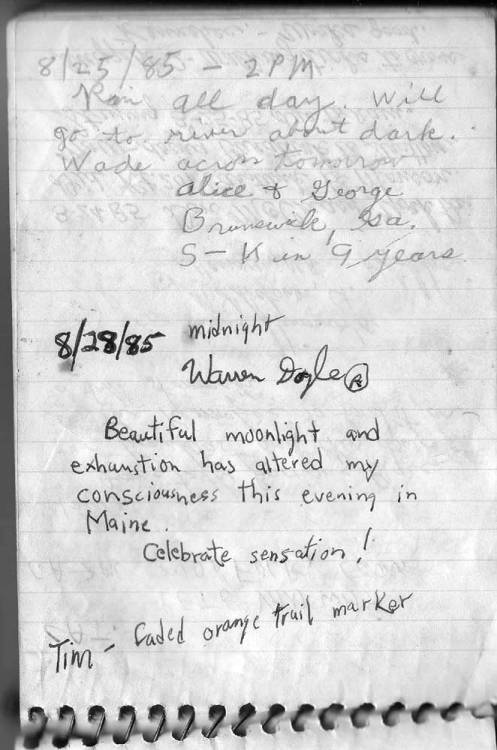 8/25/85 - 2 PM
Rain all day. Will
go to river about dark.
Wade across tomorrow
Alice & George
Brunswick, Ga.
S-K in 9 years.
8/28/85 midnight
Warren Doyle
Beautiful moonlight and
exhaustion has altered my
consciousness this evening in
Maine.
Celebrate sensation!
Tim - faded orange trail marker